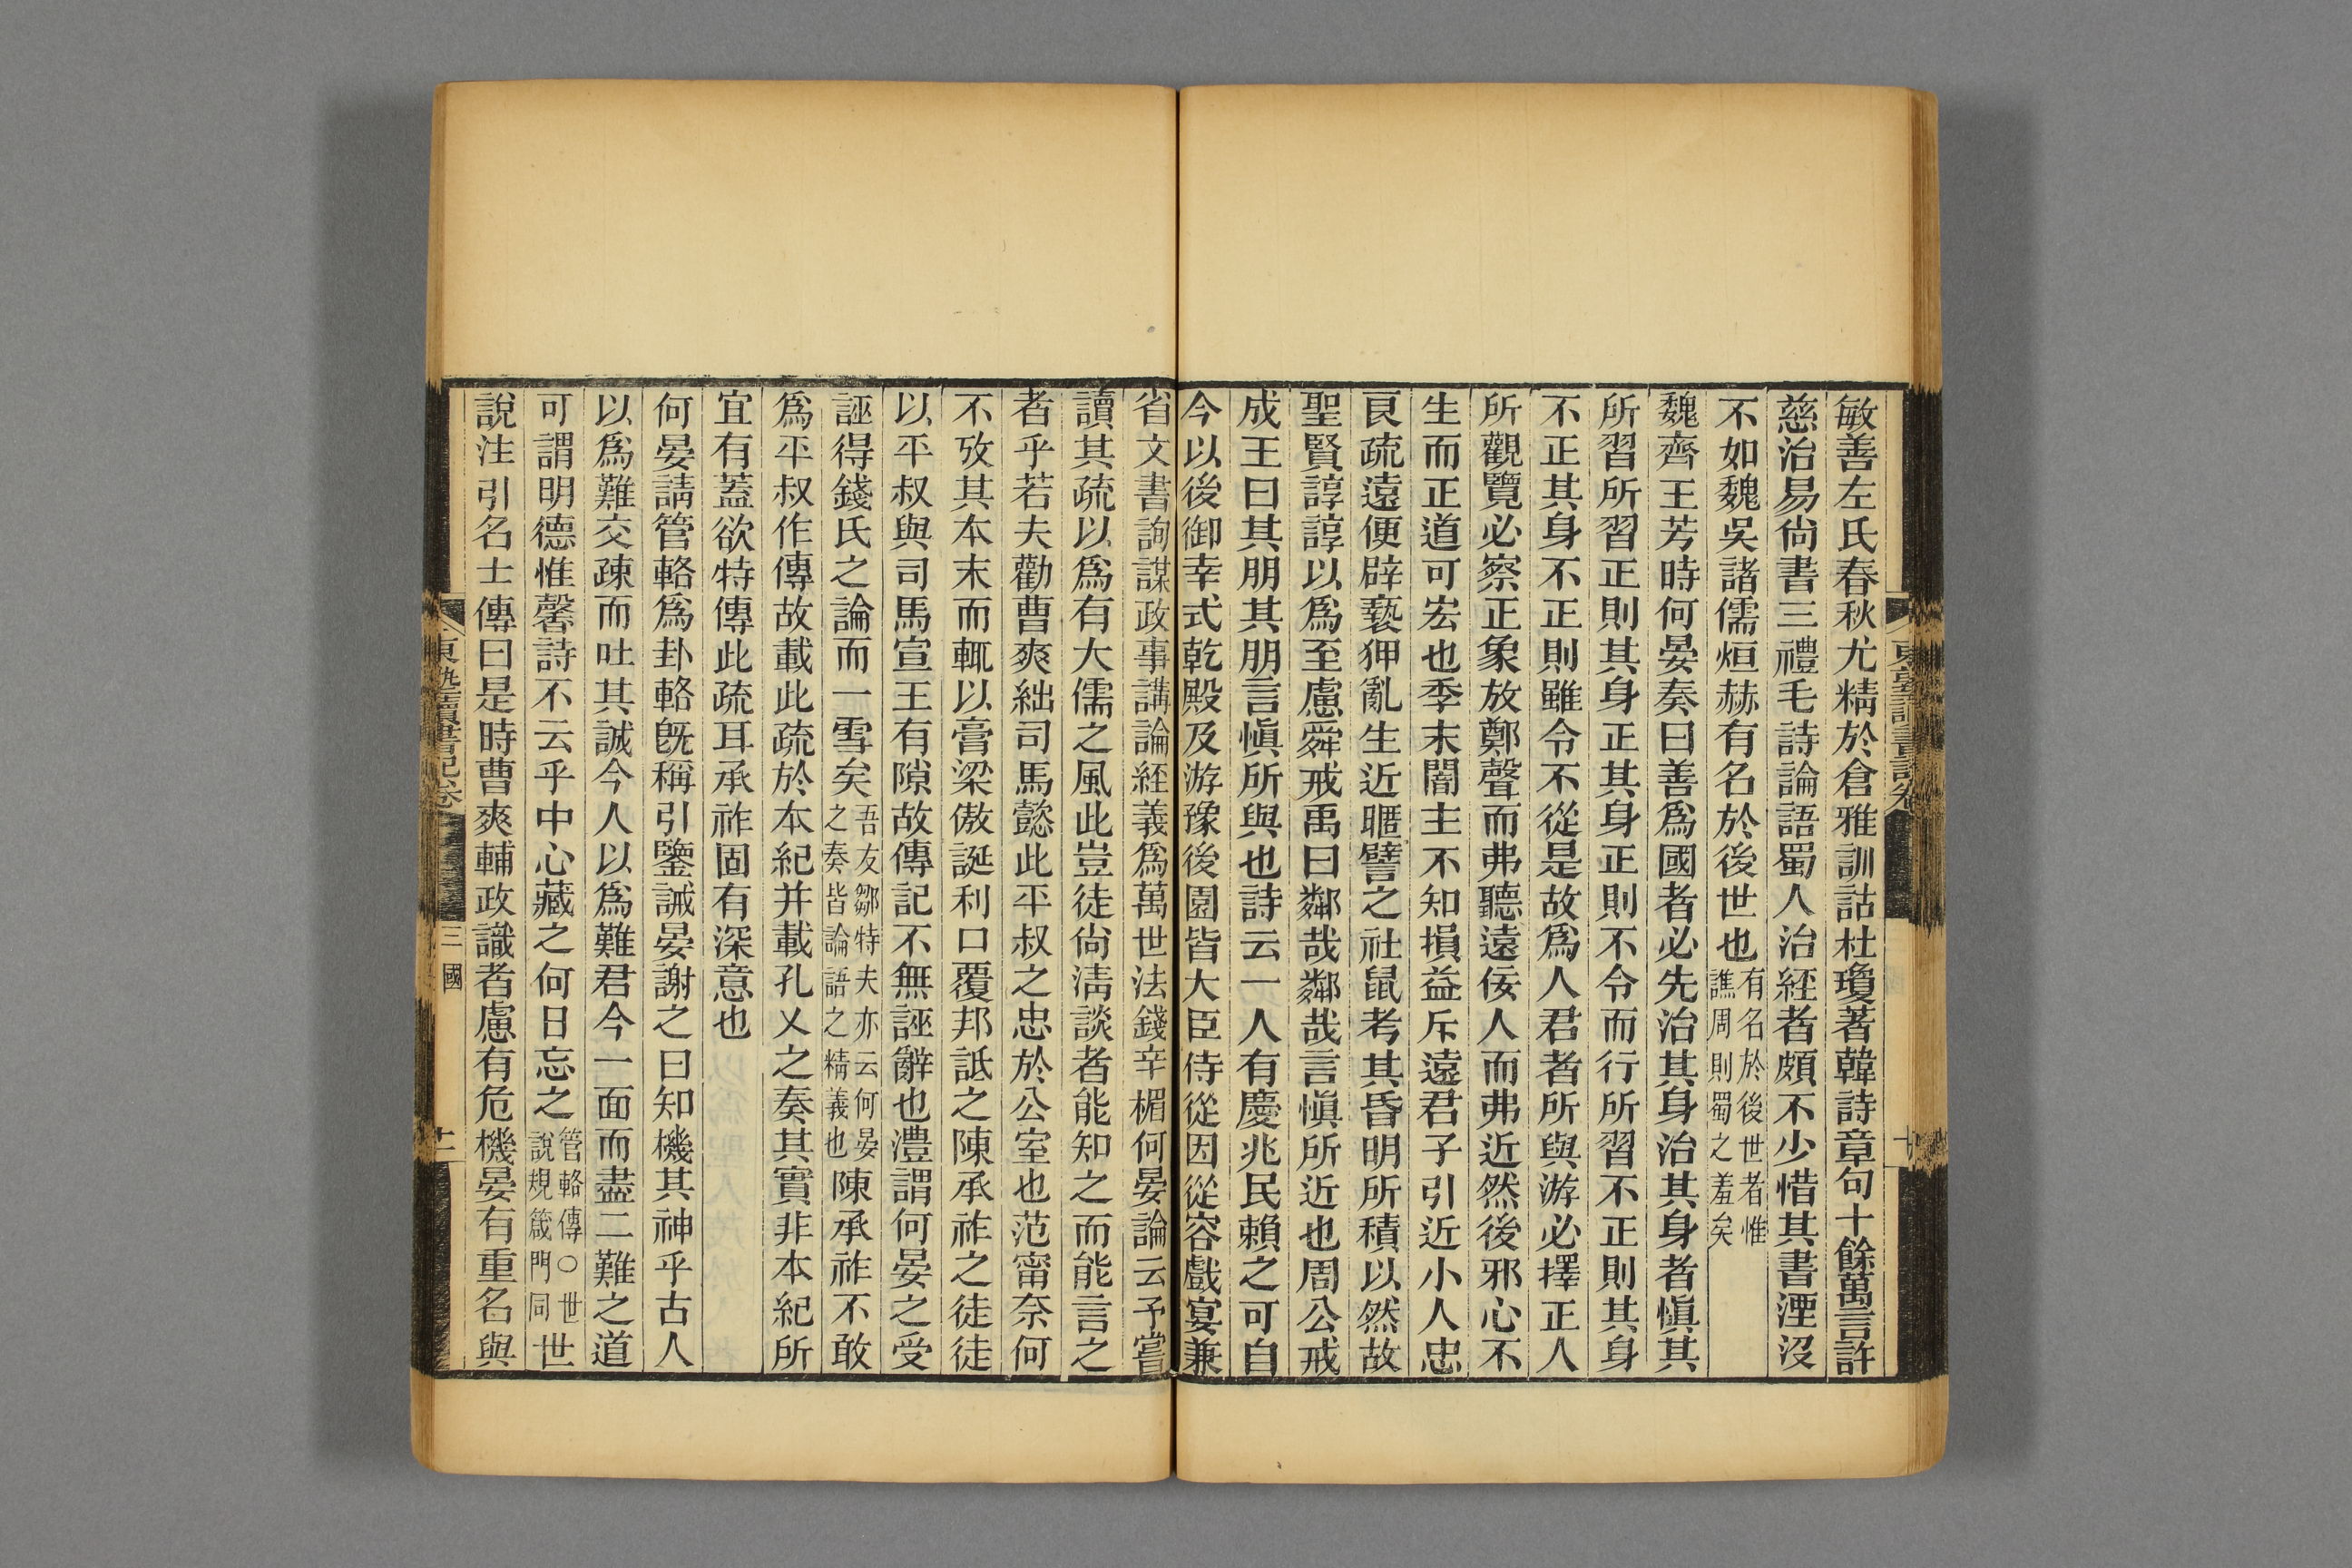 敏善左氏春秋尤精於倉雅訓詁杜瓊著韓詩章句十餘萬言許
慈治易尚書三禮毛詩論語蜀人治經者頗不少惜其書湮沒
不如魏吳諸儒烜赫有名於後世也有名於後世者惟譙周則蜀之羞矣
魏齊王芳時何晏奏曰善爲國者必先治其身治其身者愼其
所習所習正則其身正其身正則不令而行所習不正則其身
不正其身不正則雖令不從是故爲人君者所與游必擇正人
所觀覽必察正象放鄭聲而弗聽遠佞人而弗近然後邪心不
生而正道可宏也季末闇主不知損益斥遠君子引近小人忠
良疏遠便辟褻狎亂生近暱譬之社鼠考其昏明所積以然故
聖賢諄諄以爲至慮舜戒禹曰鄰哉鄰哉言愼所近也周公戒
成王曰其朋其朋言愼所與也詩云一人有慶兆民賴之可自
今以後御幸式乾殿及游豫後園皆大臣侍從因從容戲宴兼
省文書詢謀政事講論經義爲萬世法錢辛楣何晏論云予嘗
讀其疏以爲有大儒之風此豈徒尚淸談者能知之而能言之
者乎若夫勸曹爽絀司馬懿此平叔之忠於公室也范甯奈何
不攷其本末而輒以膏梁傲誕利口覆邦詆之陳承祚之徒徒
以平叔與司馬宣王有隙故傳記不無誣辭也澧謂何晏之受
誣得錢氏之論而一雪矣吾友鄒特夫亦云何晏之奏皆論語之精義也陳承祚不敢
爲平叔作傳故載此疏於本紀并載孔乂之奏其實非本紀所
宜有蓋欲特傳此疏耳承祚固有深意也
何晏請管輅爲卦輅旣稱引鑒誡晏謝之曰知機其神乎古人
以爲難交疎而吐其誠今人以爲難君今一面而盡二難之道
可謂明德惟馨詩不云乎中心藏之何日忘之管輅傳○世說規箴門同世
說注引名士傳曰是時曹爽輔政識者慮有危機晏有重名與
東塾讀書記卷
三國